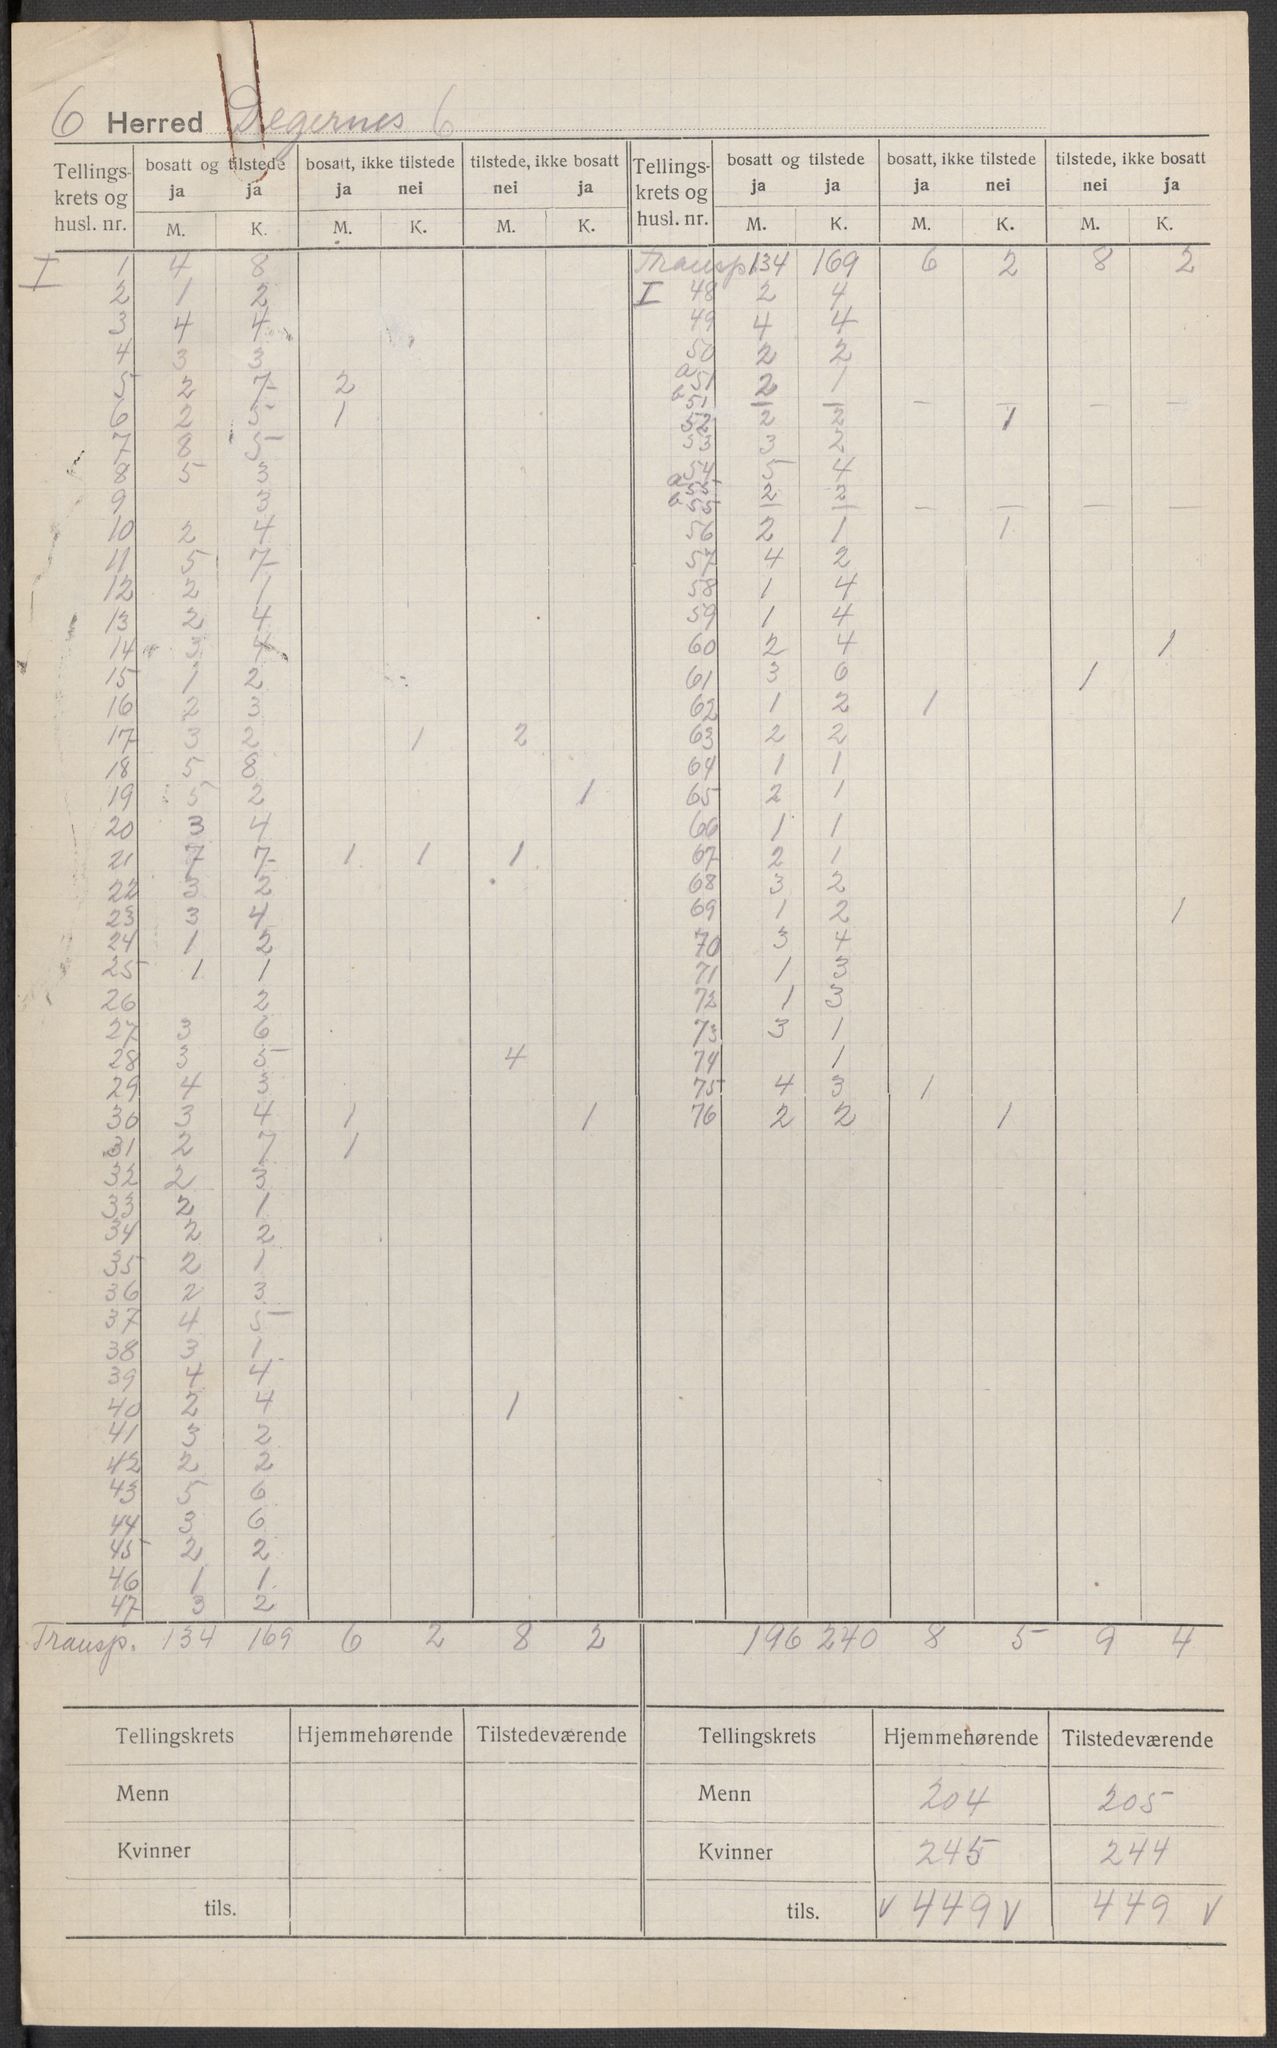 6 Herred Degernes 6
Tellings-krets og husl. nr. | bosatt og tilstede ja ja | bosatt, ikke tilstede ja nei | tilstede, ikke bosatt nei ja | Tellings-krets og husl. nr. | bosatt og tilstede ja ja | bosatt, ikke tilstede ja nei | tilstede, ikke bosatt nei ja
M. K. M. K. M. K. M. K. M. K. M. K.
I 1 4 8
2 1 2
3 4 4
4 3 3
5 2 7 2
6 2 5 1
7 8 5
8 5 3
9 3
10 2 4
11 5 7
12 2 1
13 2 4
14 3 4
15 1 2
16 2 3
17 3 2 1 2
18 5 8
19 5 2 1
20 3 4
21 7 7 1 1 1
22 3 2
23 3 4
24 1 2
25 1 1
26 2
27 3 6
28 3 5 4
29 4 3
30 3 4 1 1
31 2 7 1
32 2 3
33 2 1
34 2 2
35 2 1
36 2 3
37 4 5
38 3 1
39 4 4
40 2 4 1
41 3 2
42 2 2
43 5 6
44 3 6
45 2 2
46 1 1
47 3 2
Transp. 134 169 6 2 8 2
Transp. 134 169 6 2 8 2
I 48 2 4
49 4 4
50 2 2
a 51 2 1
b 51 — — — — — —
52 2 2 1
53 3 2
54 5 4
a 55 2 2
b 55 — — — — — —
56 2 1 1
57 4 2
58 1 4
59 1 4
60 2 4 1
61 3 6 1
62 1 2 1
63 2 2
64 1 1
65 2 1
66 1 1
67 2 1
68 3 2
69 1 2 1
70 3 4
71 1 3
72 1 3
73 3 1
74 1
75 4 3 1
76 2 2 1
196 240 8 5 9 4
Tellingskrets Hjemmehørende Tilstedeværende
Menn
Kvinner
tils.
Tellingskrets Hjemmehørende Tilstedeværende
Menn 204 205
Kvinner 245 244
tils. v 449 v 449 v